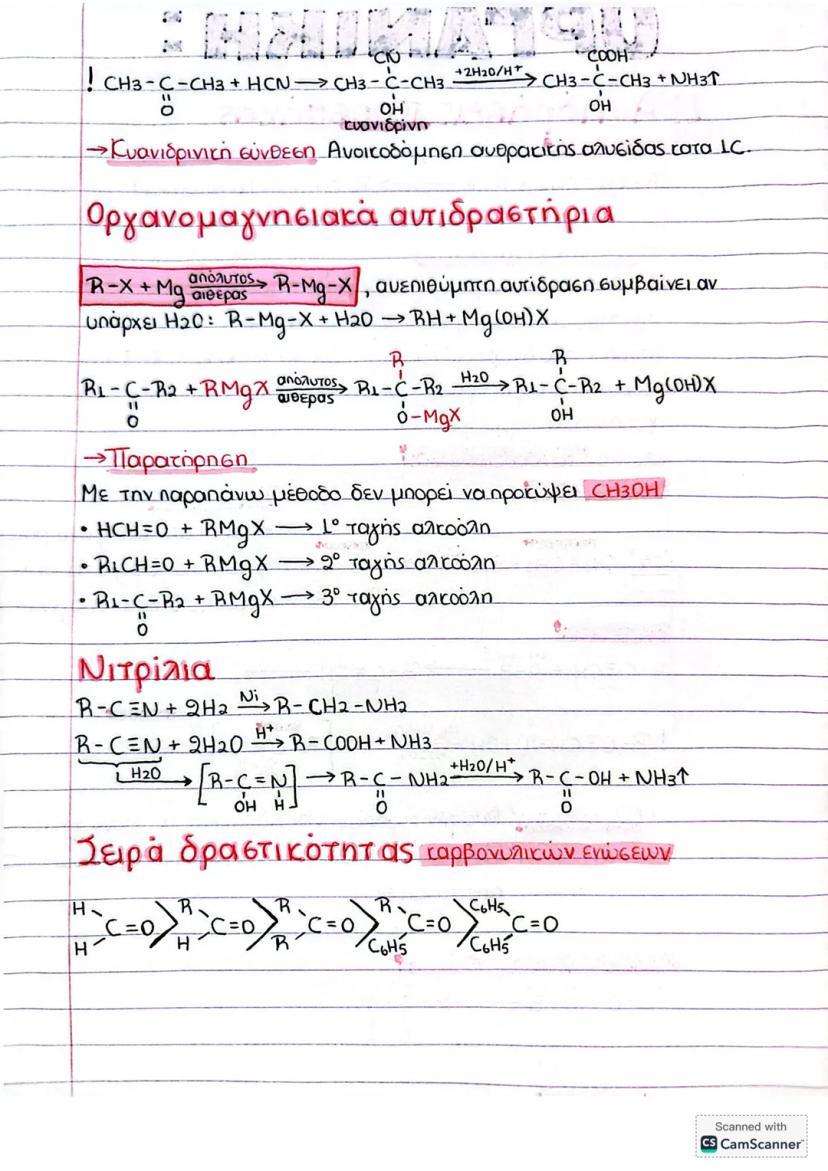 CN COOH
! CH3-C-CH3 + HCN ⟶ CH3-C-CH3 +2H2O/H+ ⟶ CH3-C-CH3 + NH3↑
O OH OH
κυανιδρίνη
→Κυανιδρινική σύνθεση Ανοικοδόμηση ανθρακικής αλυσίδας κατα 1C.
Οργανομαγνησιακά αντιδραστήρια
R-X + Mg απόλυτος αιθέρας ⟶ R-Mg-X , ανεπιθύμητη αντίδραση συμβαίνει αν
υπάρχει H2O: R-Mg-X + H2O ⟶ RH + Mg(OH)X
R R
R1-C-R2 + RMgX απόλυτος αιθέρας ⟶ R1-C-R2 H2O ⟶ R1-C-R2 + Mg(OH)X
O O-MgX OH
→Παρατήρηση
Με την παραπάνω μέθοδο δεν μπορεί να προκύψει CH3OH
• HCH=O + RMgX ⟶ 1° ταγής αλκοόλη
• R1CH=O + RMgX ⟶ 2° ταγής αλκοόλη
• R1-C-R2 + RMgX ⟶ 3° ταγής αλκοόλη
O
Νιτρίλια
R-C≡N + 2H2 Ni ⟶ R-CH2-NH2
R-C≡N + 2H2O H+ ⟶ R-COOH + NH3
H2O ⟶ [R-C=N] ⟶ R-C-NH2 +H2O/H+ ⟶ R-C-OH + NH3↑
OH H O O
Σειρά δραστικότητας καρβονυλικών ενώσεων
H R R R C6H5
C=O > C=O > C=O > C=O > C=O
H H R C6H5 C6H5
Scanned with
CS CamScanner